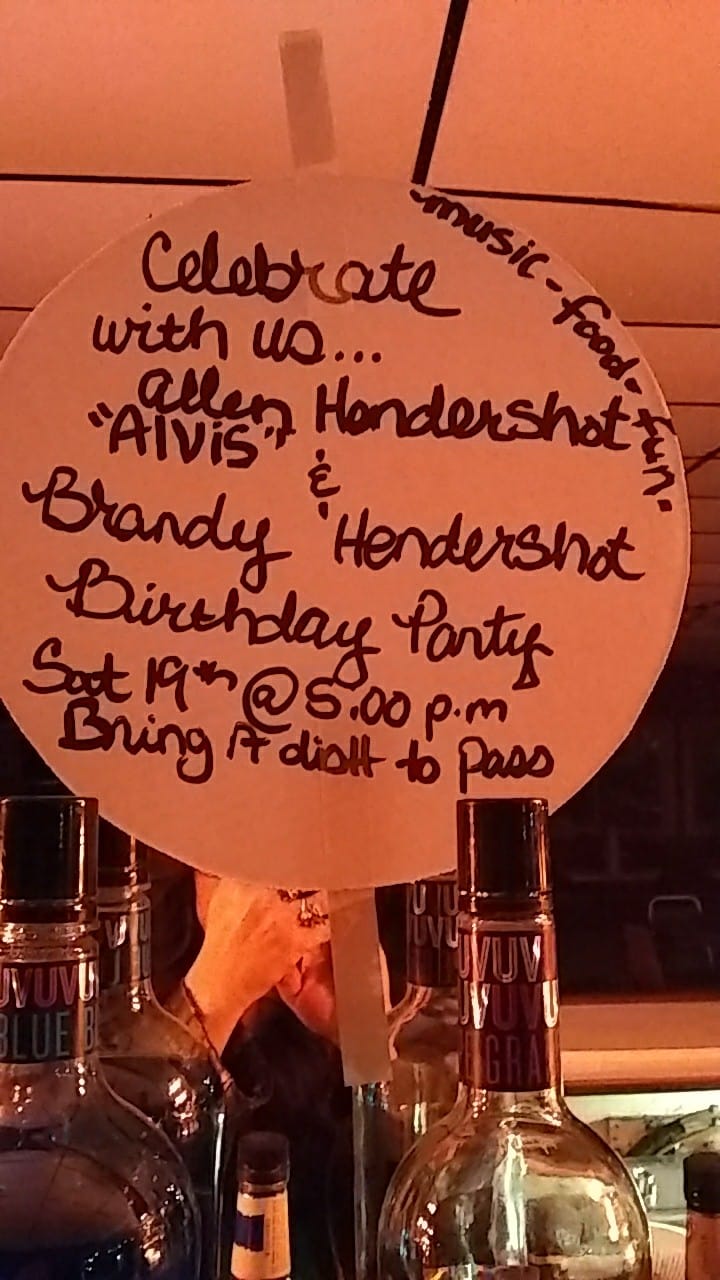 Celebrate
with us...
Allen Hendershot
"Alvis"
&
Brandy Hendershot
Birthday Party
Sat 19th @ 5:00 p.m
Bring A disH to Pass
-music-food-fun-
UVUVU
BLUE B
UVUV
UVUVU
GRA